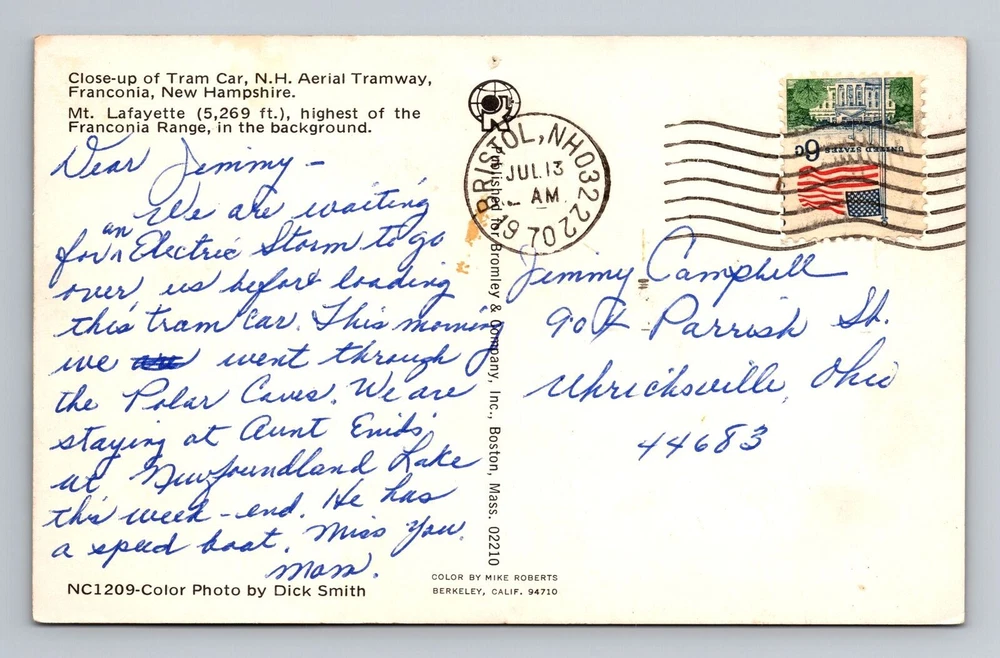 Close-up of Tram Car, N.H. Aerial Tramway,
Franconia, New Hampshire.
Mt. Lafayette (5,269 ft.), highest of the
Franconia Range, in the background.
Dear Jimmy –
We are waiting
for an Electric Storm to go
over us before loading
this tram car. This morning
we went through
the Polar Caves. We are
staying at Aunt Enid's
at Newfoundland Lake
this week-end. He has
a speed boat. Miss you.
Mom.
NC1209-Color Photo by Dick Smith
Published for Bromley & Company, Inc., Boston, Mass. 02210
COLOR BY MIKE ROBERTS
BERKELEY, CALIF. 94710
BRISTOL, NH 03222
JUL 13
AM
1970
UNITED STATES 6c
Jimmy Campbell
904 Parrish St.
Uhrichsville, Ohio
44683